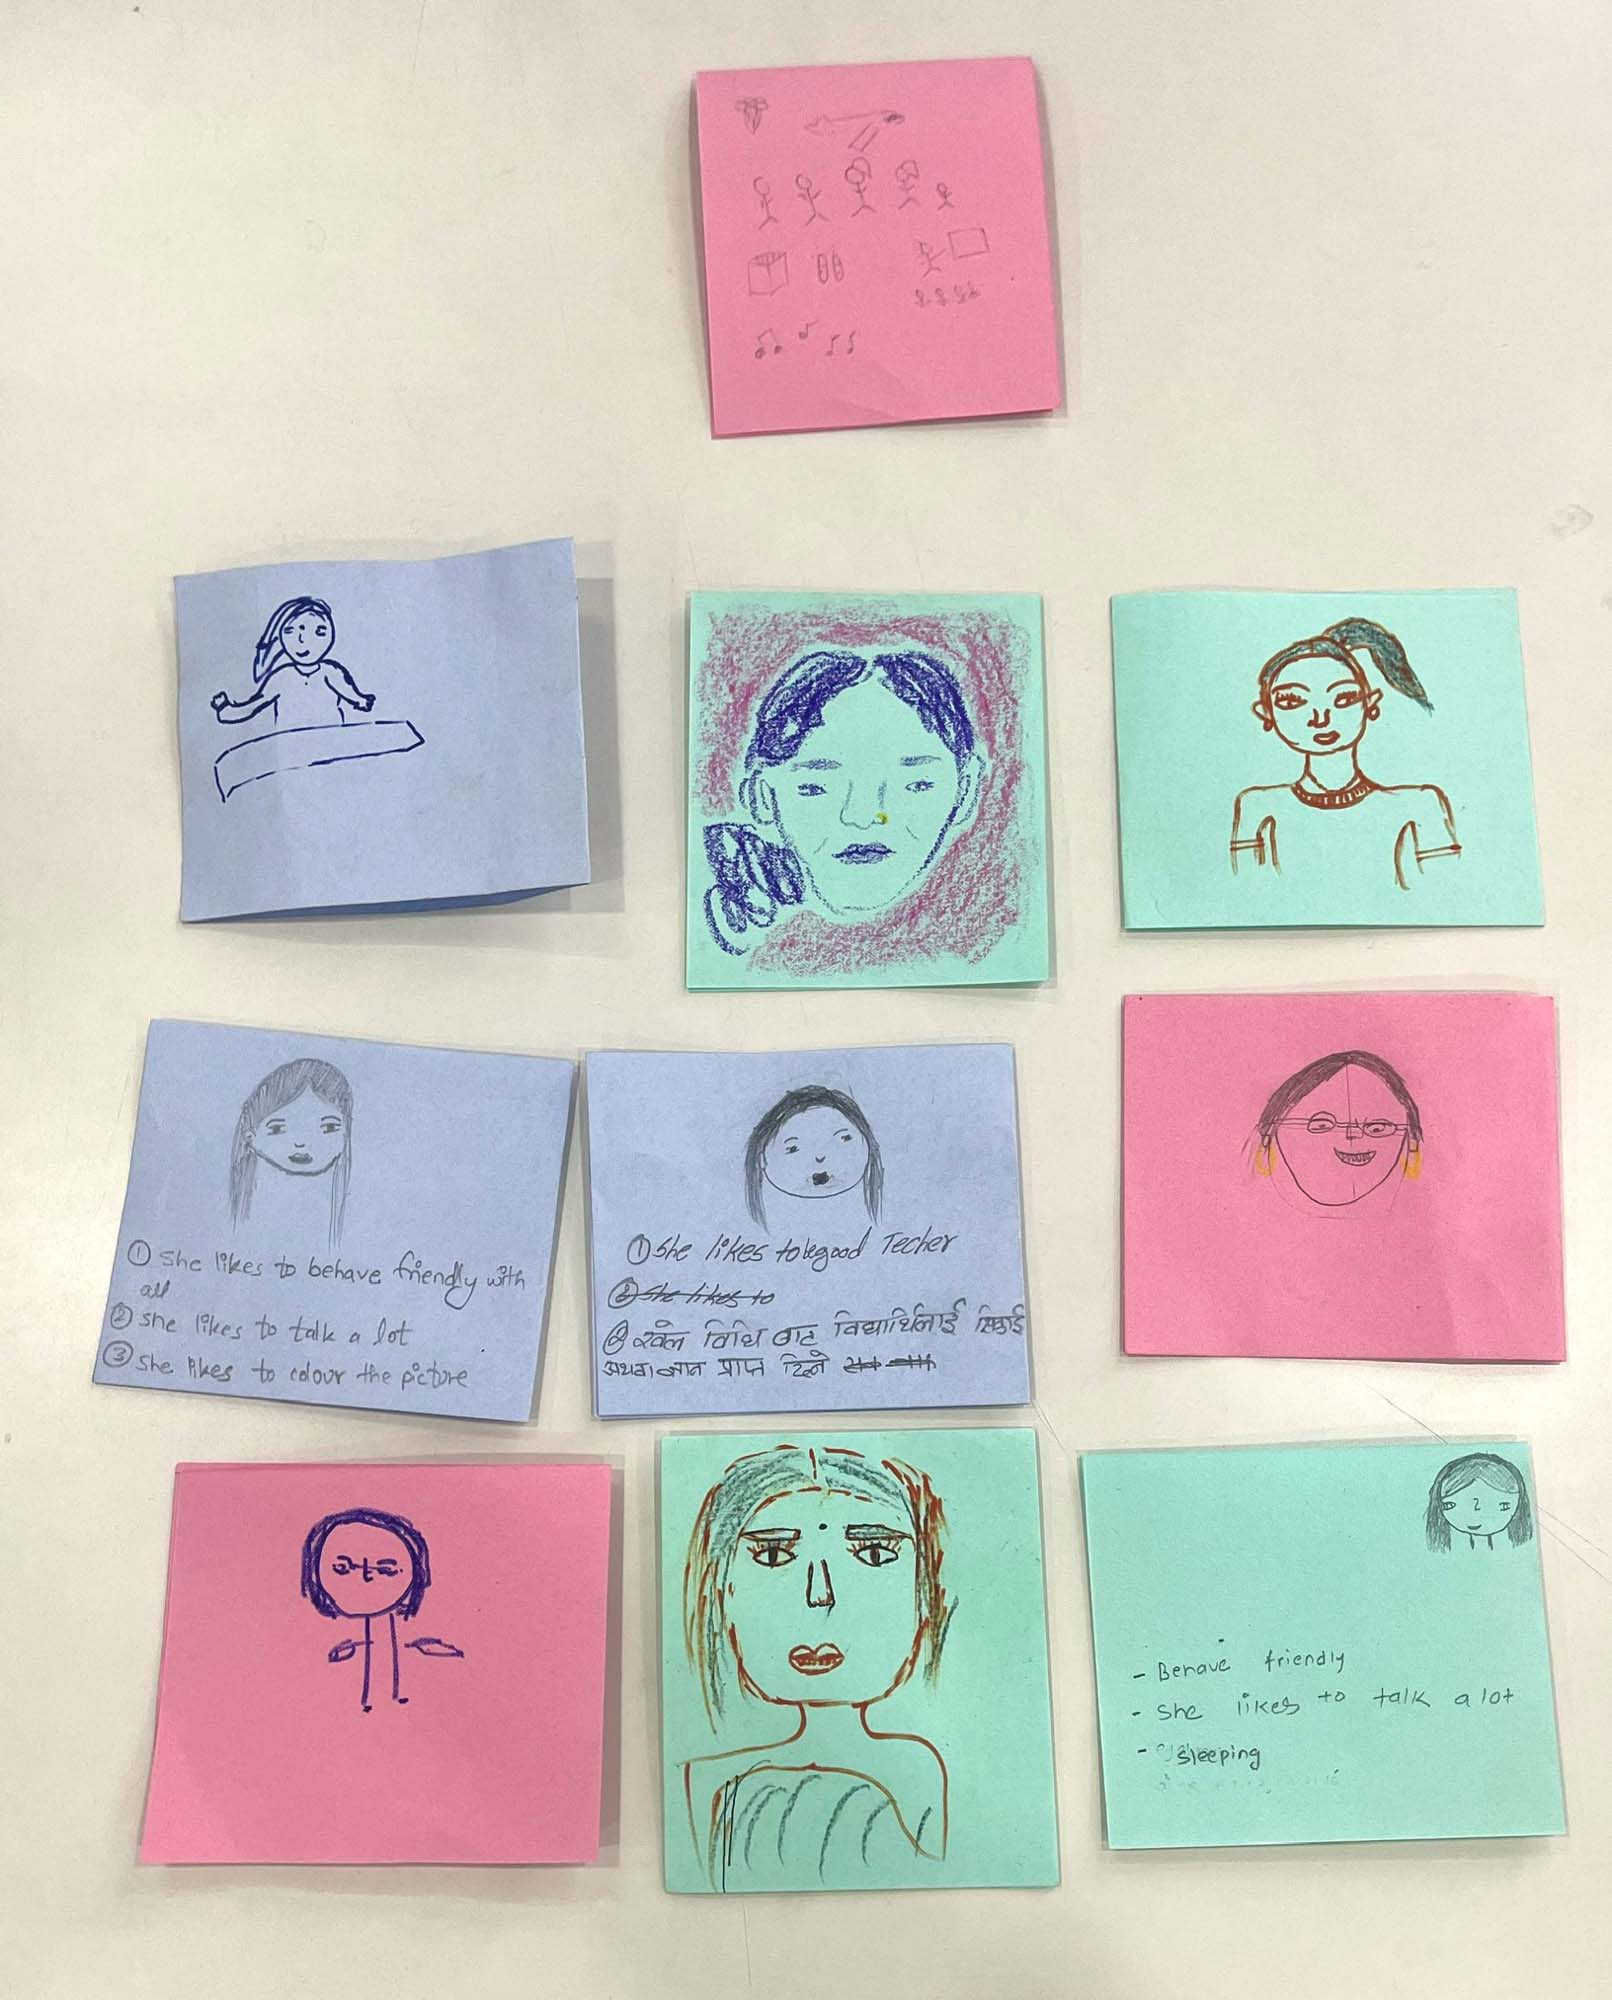 ① She likes to behave friendly with
all
② She likes to talk a lot
③ She likes to colour the picture
① She likes to be good Techer
② She likes to
② खेल विधि बाट विद्यार्थिलाई सिकाई
अथवा ज्ञान प्राप्त दिने
- Behave friendly
- She likes to talk a lot
- sleeping